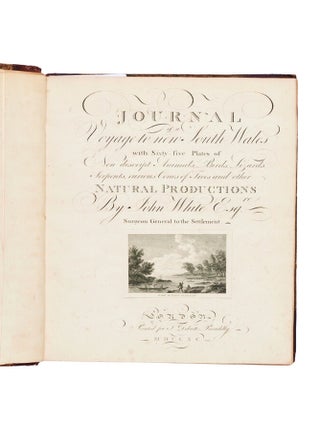 JOURNAL
of a
Voyage to new South Wales
with Sixty five Plates of
Non descript Animals, Birds, Lizards,
Serpents, curious Cones of Trees and other
NATURAL PRODUCTIONS
By John White Esqr.
Surgeon General to the Settlement.
LONDON
Printed for J. Debrett Piccadilly
MDCCXC